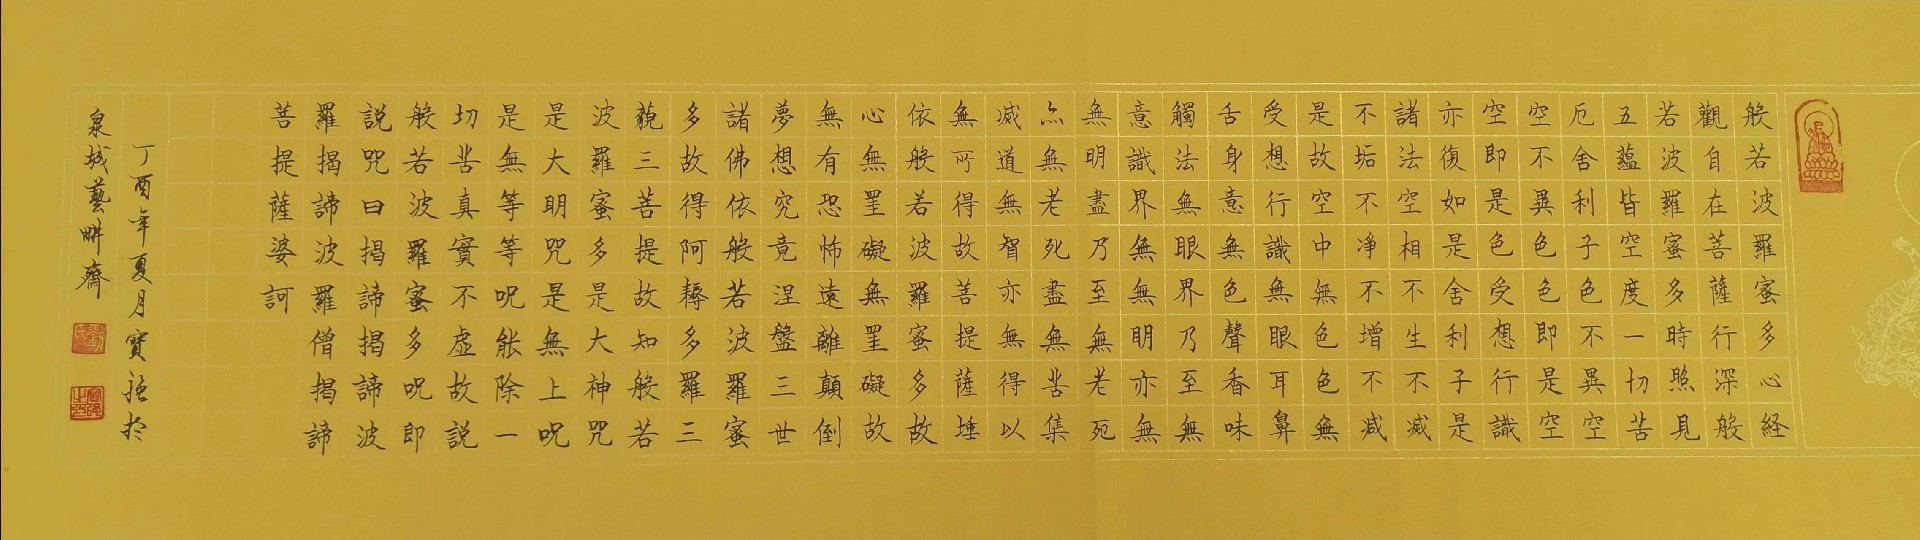 般若波羅蜜多心経
觀自在菩薩行深般
若波羅蜜多時照見
五蘊皆空度一切苦
厄舍利子色不異空
空不異色色即是空
空即是色受想行識
亦復如是舍利子是
諸法空相不生不减
不垢不净不增不减
是故空中無色色無
受想行識無眼耳鼻
舌身意無色聲香味
觸法無眼界乃至無
意識界無無明亦無
無明盡乃至無老死
亦無老死盡無苦集
减道無智亦無得以
無所得故菩提薩埵
依般若波羅蜜多故
心無罣礙無罣礙故
無有恐怖遠離顛倒
夢想究竟涅盤三世
諸佛依般若波羅蜜
多故得阿耨多羅三
藐三菩提故知般若
波羅蜜多是大神咒
是大明咒是無上咒
是無等等呪能除一
切苦真實不虛故説
般若波羅蜜多呪即
説呪曰揭諦揭諦波
羅揭諦波羅僧揭諦
菩提薩婆訶
丁酉年夏月寳强於
泉城藝畊齋